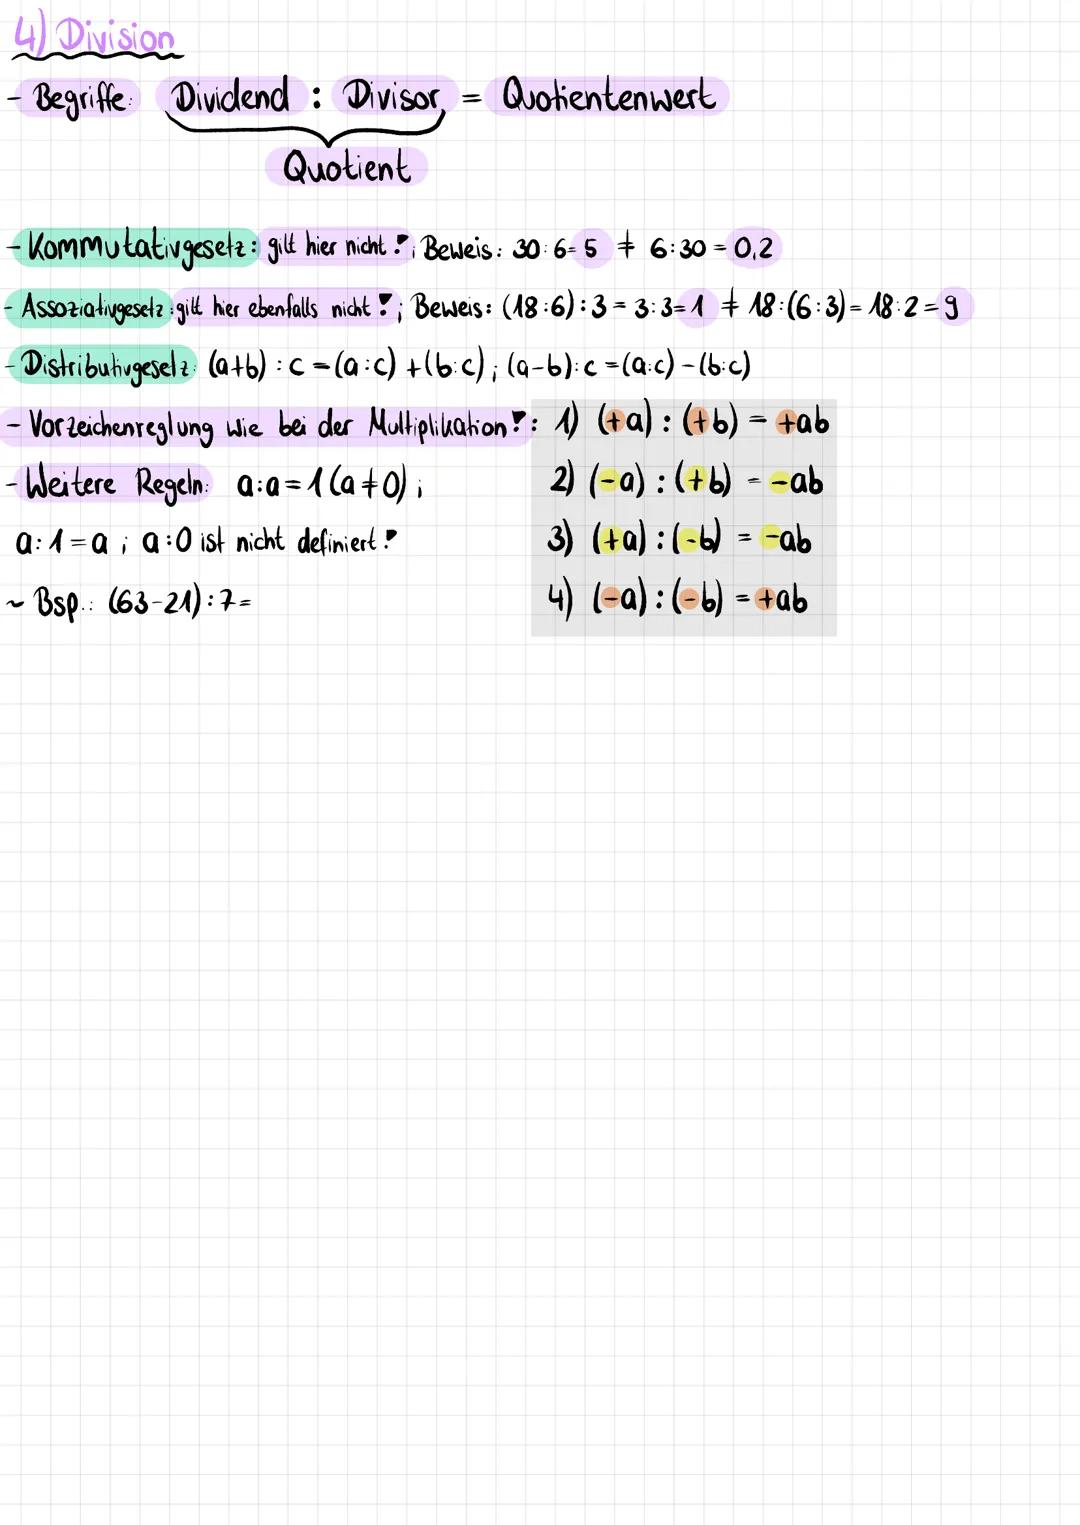 4) Division
- Begriffe: Dividend : Divisor = Quotientenwert
Quotient
- Kommutativgesetz: gilt hier nicht!; Beweis: 30:6=5 ≠ 6:30=0,2
- Assoziativgesetz: gilt hier ebenfalls nicht!; Beweis: (18:6):3=3:3=1 ≠ 18:(6:3)=18:2=9
- Distributivgesetz: (a+b):c=(a:c)+(b:c); (a-b):c=(a:c)-(b:c)
- Vorzeichenreglung wie bei der Multiplikation!: 1) (+a):(+b)=+ab
- Weitere Regeln: a:a=1(a≠0); 2) (-a):(+b)=-ab
a:1=a; a:0 ist nicht definiert! 3) (+a):(-b)=-ab
~ Bsp.: (63-21):7= 4) (-a):(-b)=+ab